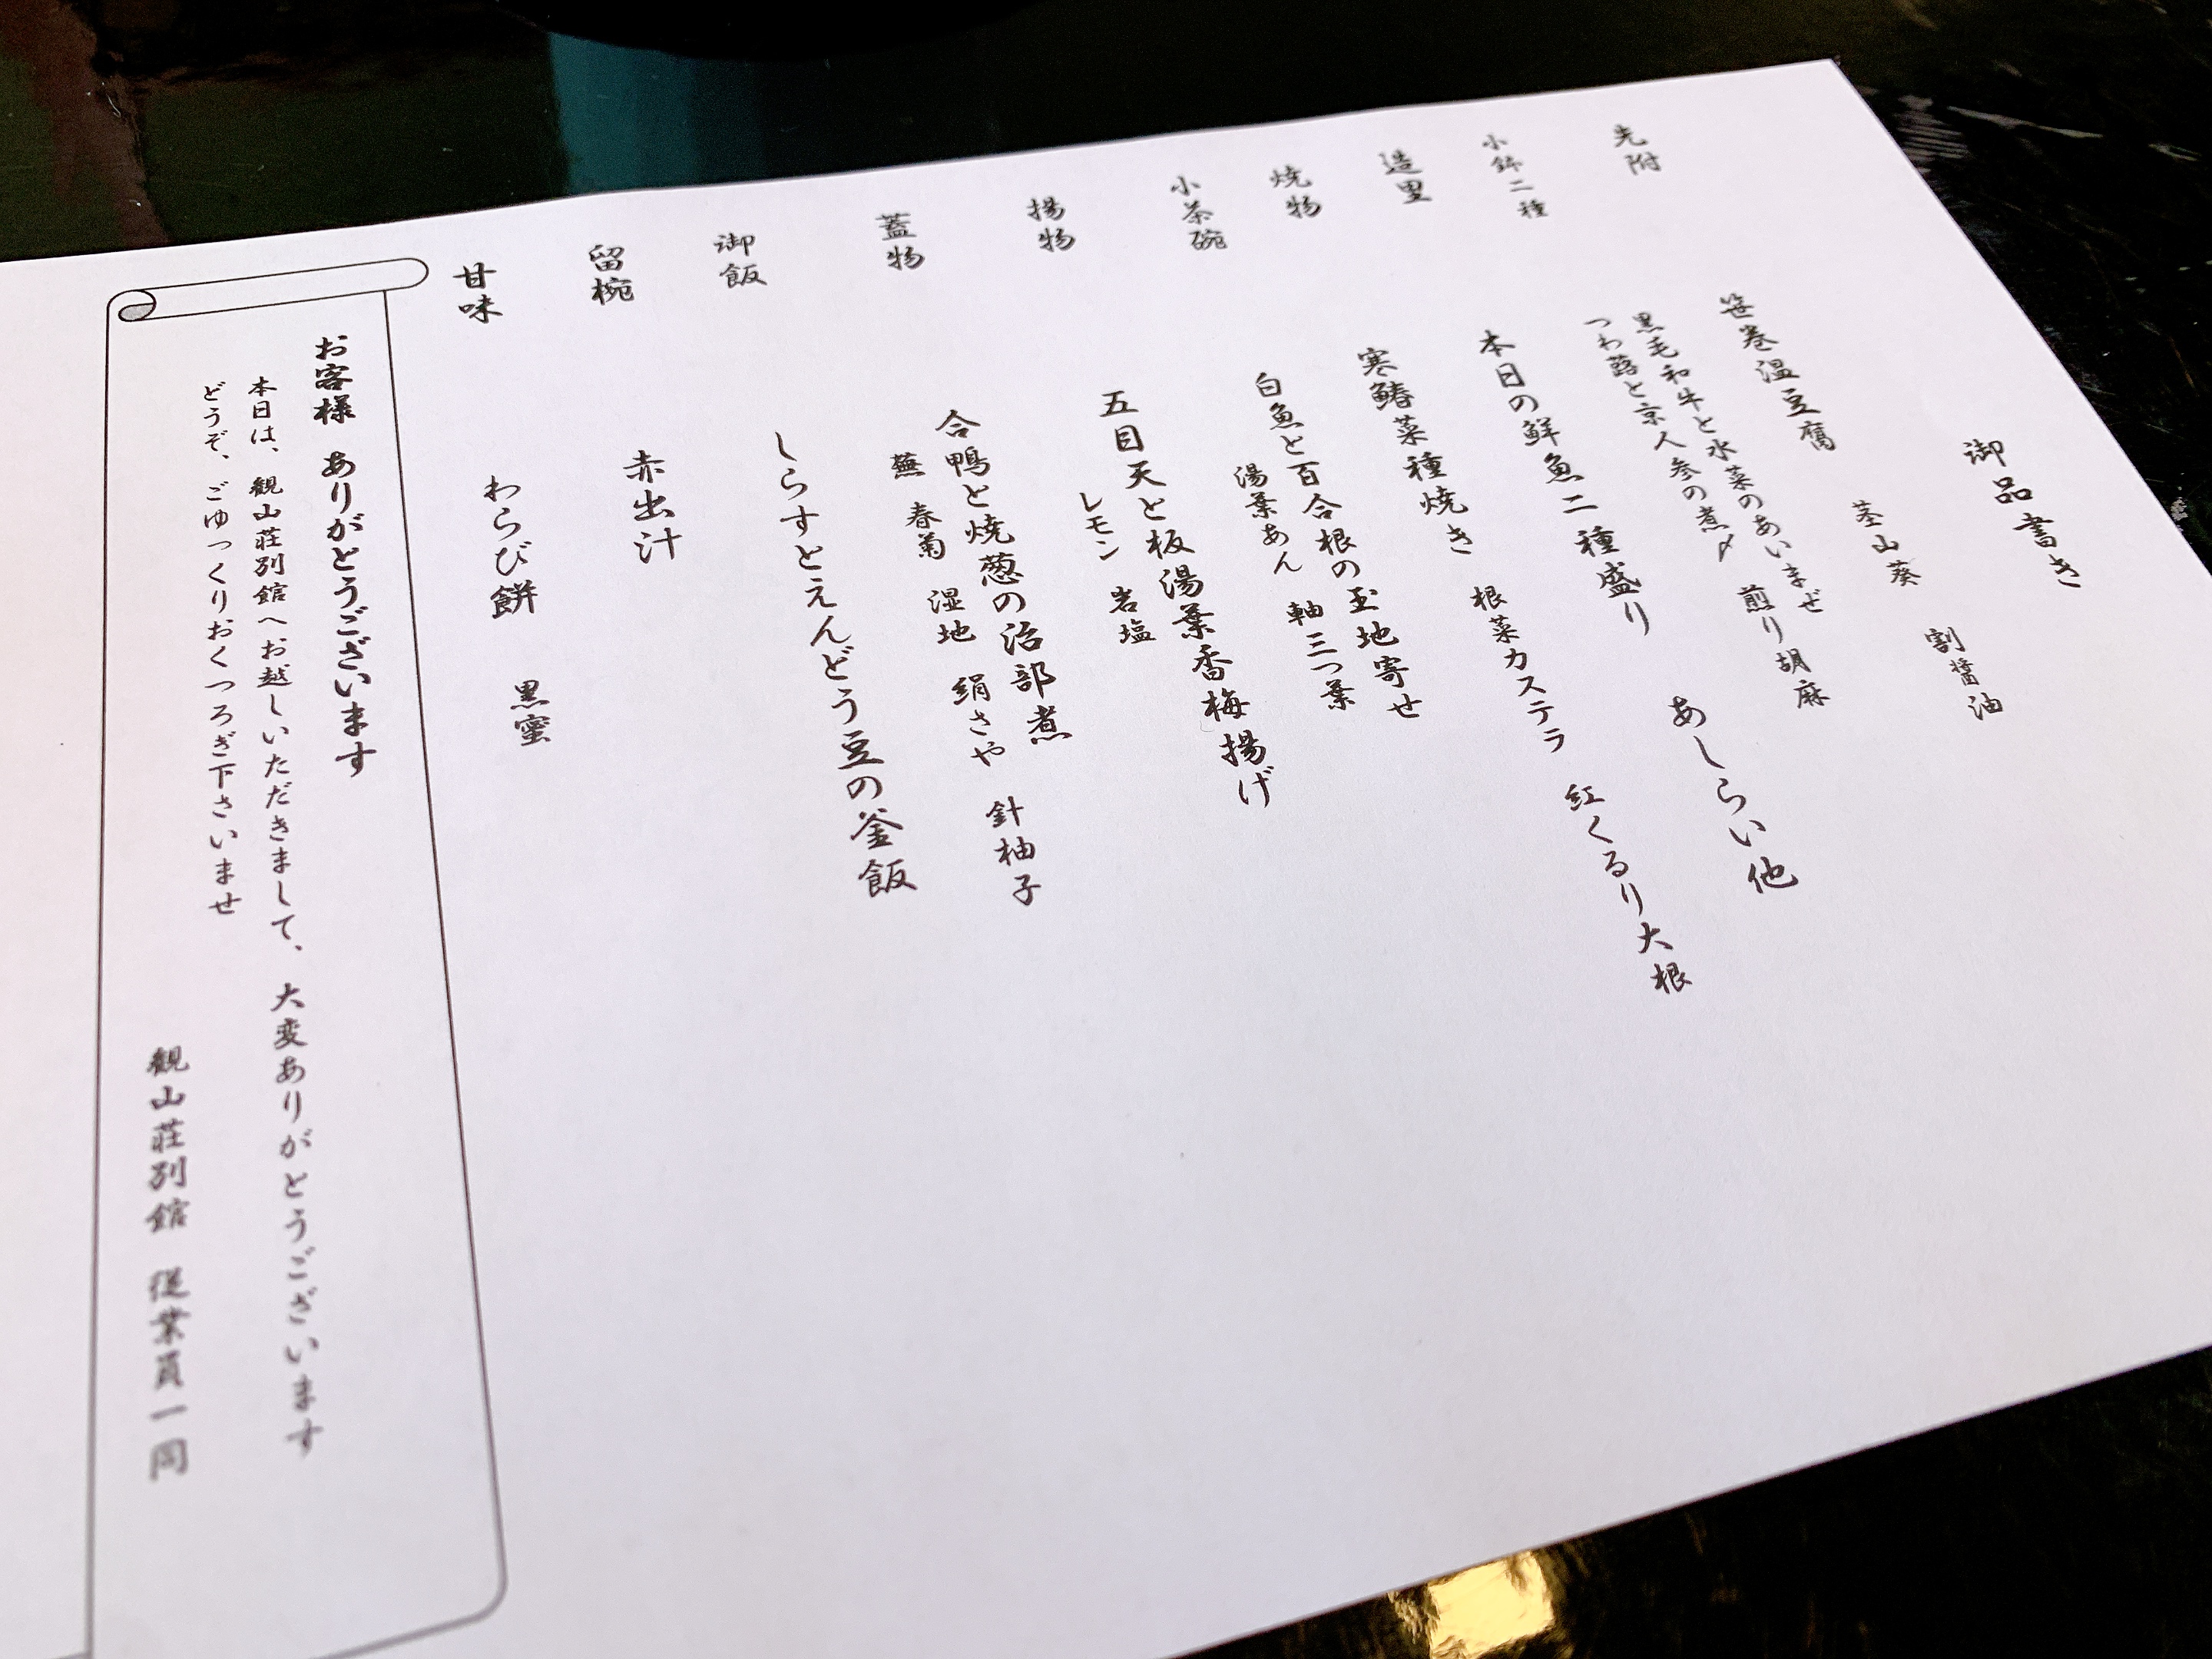 御品書き
先附
笹巻温豆腐 茎山葵 割醤油
小鉢二種
黒毛和牛と水菜のあいまぜ 煎り胡麻
つわ蕗と京人参の煮〆
造里
本日の鮮魚二種盛り あしらい他
焼物
寒鰆菜種焼き 根菜カステラ 紅くるり大根
小茶碗
白魚と百合根の玉地寄せ
湯葉あん 軸三つ葉
揚物
五目天と板湯葉香梅揚げ
レモン 岩塩
蓋物
合鴨と焼葱の治部煮
蕪 春菊 湿地 絹さや 針柚子
御飯
しらすとえんどう豆の釜飯
留椀
赤出汁
甘味
わらび餅 黒蜜
お客様 ありがとうございます
本日は、観山荘別館へお越しいただきまして、大変ありがとうございます
どうぞ、ごゆっくりおくつろぎ下さいませ
観山荘別館 従業員一同